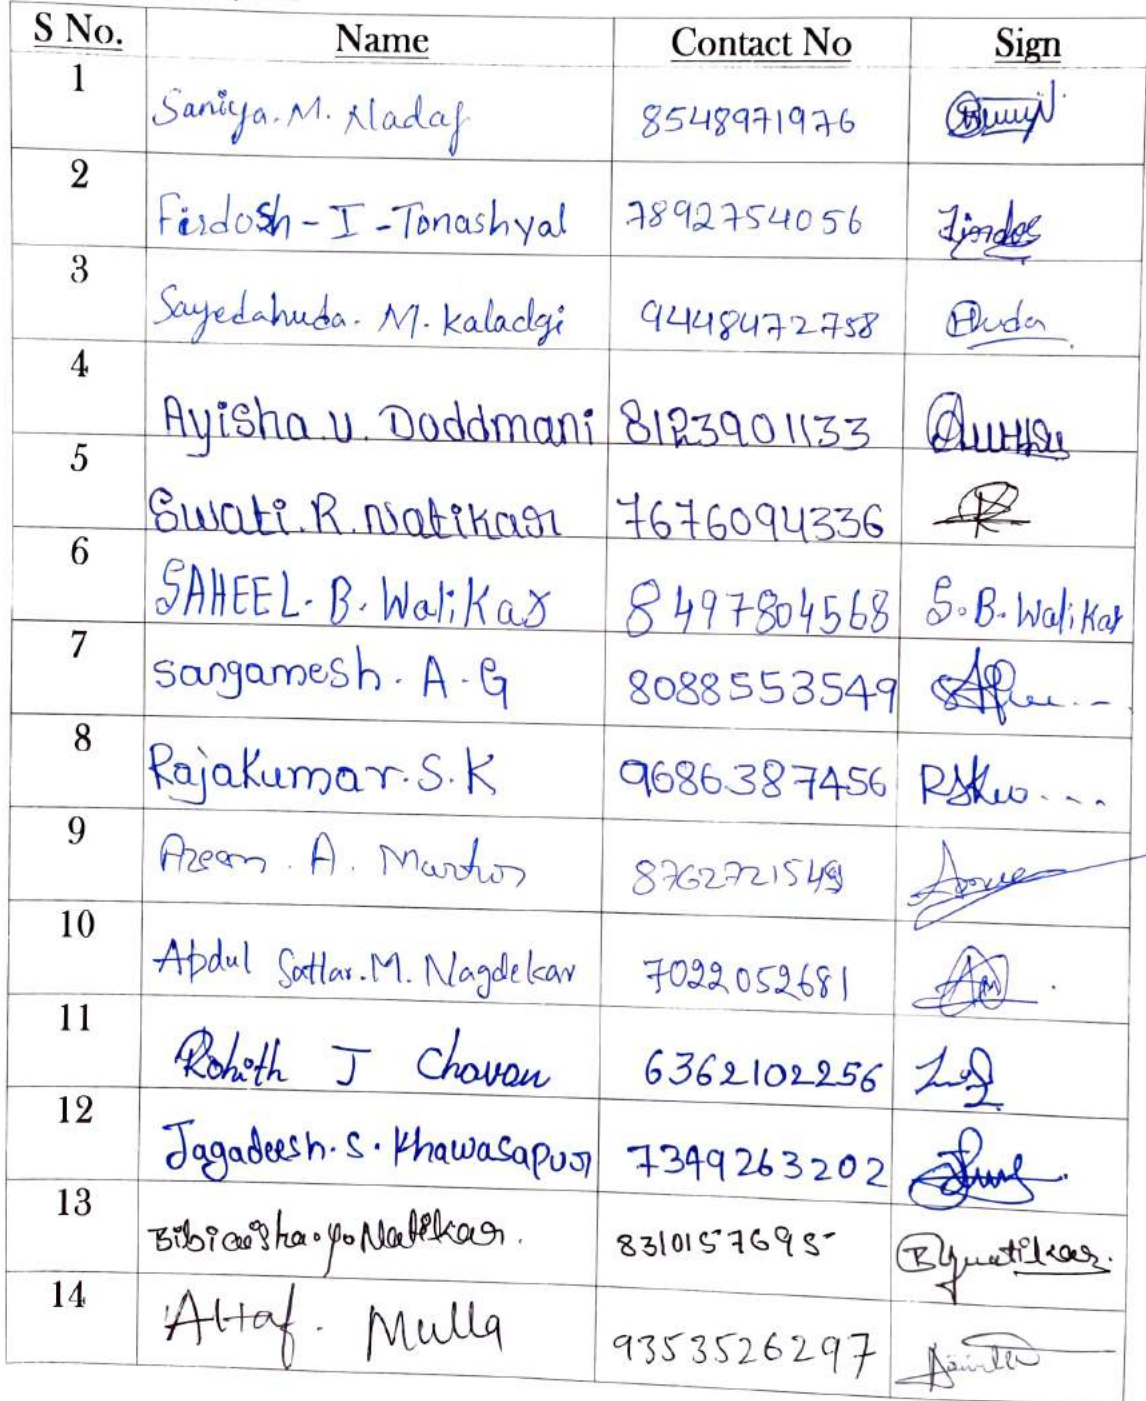 S No. Name Contact No Sign
1 Saniya. M. Nadaf 8548971976
2 Firdosh - I - Tonashyal 7892754056 Firdos
3 Sayedahuda. M. Kaladgi 9448472758 Huda
4 Ayisha. U. Doddmani 8123901133
5 Swati. R. Natikar 7676094336
6 SAHEEL. B. Walikar 8497804568 S. B. Walikar
7 Sangamesh. A. G 8088553549
8 Rajakumar. S. K 9686387456
9 A. 8762721549
10 Abdul Sattar. M. Nagdekar 7022052681
11 Rohith J Chavan 6362102256
12 Jagadeesh. S. Khawasapur 7349263202
13 Bibiaisha. Y. Natikar. 8310157695
14 Altaf. Mulla 9353526297